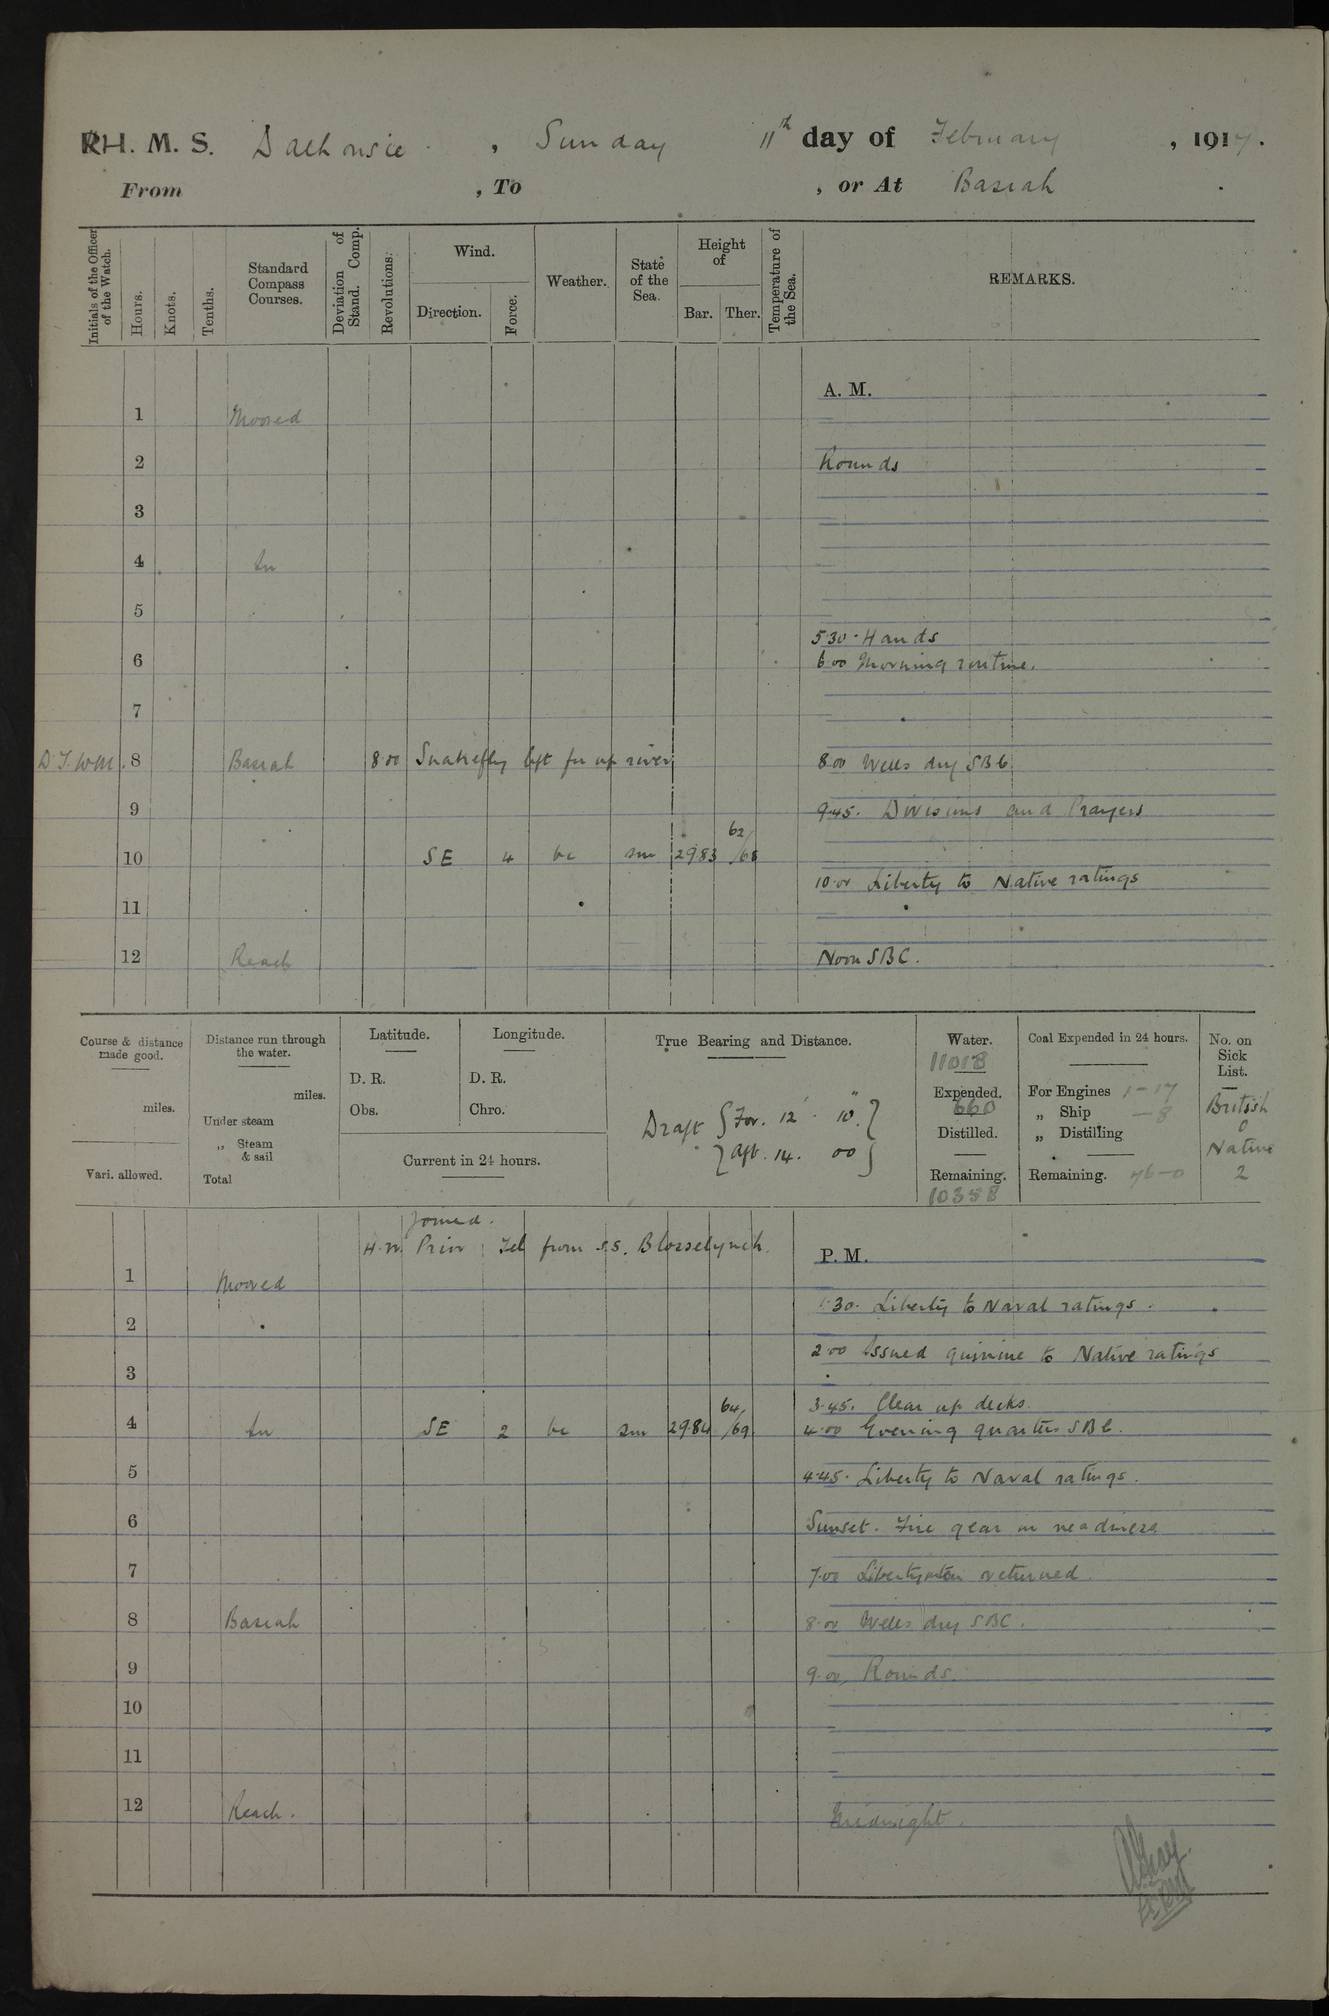 R H. M. S. Dalhousie, Sunday 11th day of February, 1917.
From , To , or At Basrah.
Initials of the Officer of the Watch.
Hours.
Knots.
Tenths.
Standard Compass Courses.
Deviation of Stand. Comp.
Revolutions.
Wind.
Direction.
Force.
Weather.
State of the Sea.
Height of
Bar. Ther.
Temperature of the Sea.
REMARKS.
A. M.
1 Moored
2 Rounds
3
4 In
5
5.30. Hands
6 6.00 Morning routine.
7
8 Basrah 8.00 left for up river 8.00 Wells dry SBC
9 9.45. Divisions and Prayers
62
10 SE 4 bc sm 29.83 /68
10.00 Liberty to Native ratings
11
12 Reach Noon SBC.
Course & distance made good.
miles.
Vari. allowed.
Distance run through the water.
miles.
Under steam
„ Steam & sail
Total
Latitude.
D. R.
Obs.
Longitude.
D. R.
Chro.
Current in 24 hours.
True Bearing and Distance.
Draft { For. 12' . 10" }
{ Aft. 14. 00 }
Water.
11018
Expended.
660
Distilled.
Remaining.
10358
Coal Expended in 24 hours.
For Engines 1-17
„ Ship -8
„ Distilling
Remaining. 76-0
No. on Sick List.
British
0
Native
2
Joined.
Prior Tel from s.s. Blosselynch.
P. M.
1 Moored
1.30. Liberty to Naval ratings.
2
2.00 Issued quinine to Native ratings
3
3.45. Clear up decks.
64
4 In SE 2 bc sm 29.84 /69 4.00 Evening quarters SBC.
5 4.45. Liberty to Naval ratings.
6 Sunset. Fire gear in readiness
7 7.00 Libertymen returned
8 Basrah 8.00 Wells dry SBC.
9 9.00 Rounds.
10
11
12 Reach. Midnight.